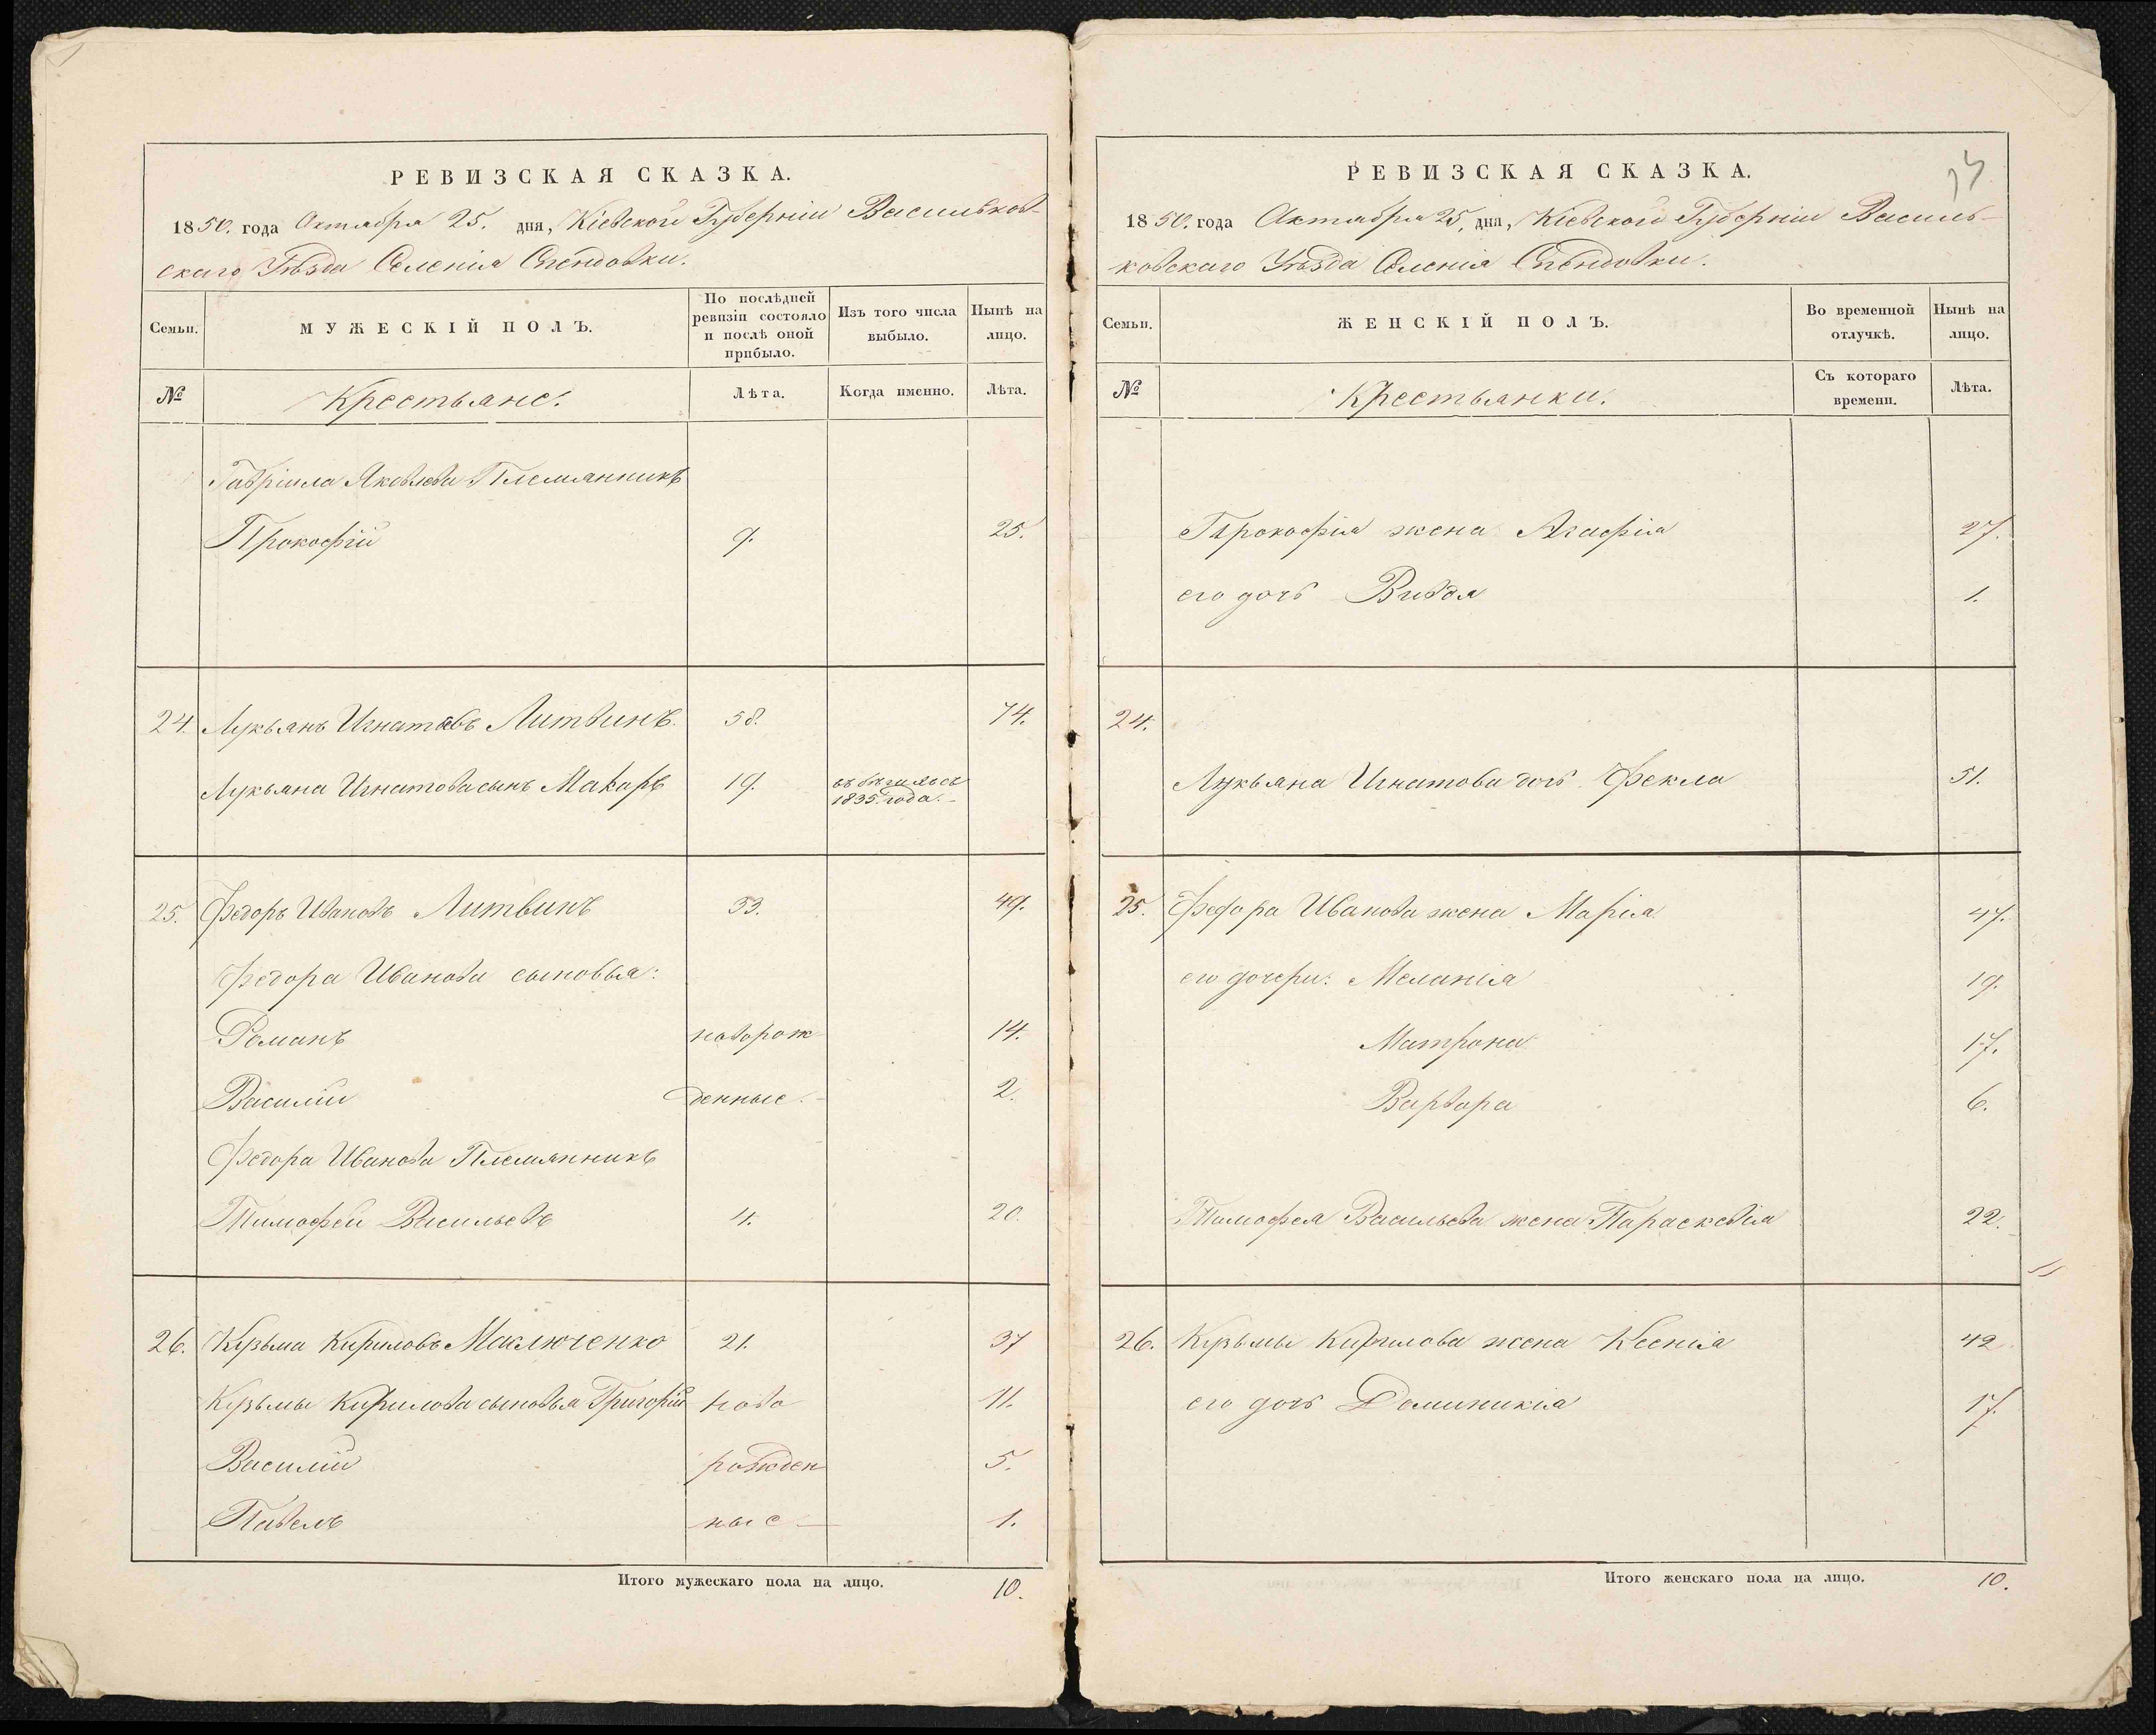 РЕВИЗСКАЯ СКАЗКА.
1850. года Октября 25. дня, Кіевской Губерніи Васильков-
скаго Уѣзда Селенія Спендовки.
Семьи.
МУЖЕСКІЙ ПОЛЪ.
По послѣдней
ревизіи состояло
и послѣ оной
прибыло.
Изъ того числа
выбыло.
Нынѣ на
лицо.
№
Крестьяне.
Лѣта.
Когда именно.
Лѣта.
Гавріила Яковлева Племянникъ
Прокофій 9. 25.
24. Лукьянъ Игнатовъ Литвинъ. 58. 74.
Лукьяна Игнатова сынъ Макаръ 19. въ бѣгильсь
1835. года.
25. Федоръ Ивановъ Литвинъ 33. 49.
Федора Иванова сыновья:
Романъ новорож 14.
Василій денные. 2.
Федора Иванова Племянникъ
Тимофей Васильевъ 4. 20.
26. Кузьма Кириловъ Маключенко 21. 37
Кузьмы Кирилова сыновья Григорій ново 11.
Василій рожден 5.
Павелъ ные 1.
Итого мужескаго пола на лицо. 10.
РЕВИЗСКАЯ СКАЗКА.
1850. года Октября 25, дня, Кіевской Губерніи Василь-
ковскаго Уѣзда Селенія Спендовки.
Семьи.
ЖЕНСКІЙ ПОЛЪ.
Во временной
отлучкѣ.
Нынѣ на
лицо.
№
Крестьянки.
Съ котораго
времени.
Лѣта.
Прокофія жена Агафія 27.
его дочь 1.
24.
Лукьяна Игнатова дочь Фекла 51.
25. Федора Иванова жена Марія 47.
его дочери: Меланія 19.
Матрона 17.
Варвара 6.
Тимофея Васильева жена Параскевія 22.
26. Кузьмы Кирилова жена Ксенія 42.
его дочь Доминикія 17.
Итого женскаго пола на лицо. 10.